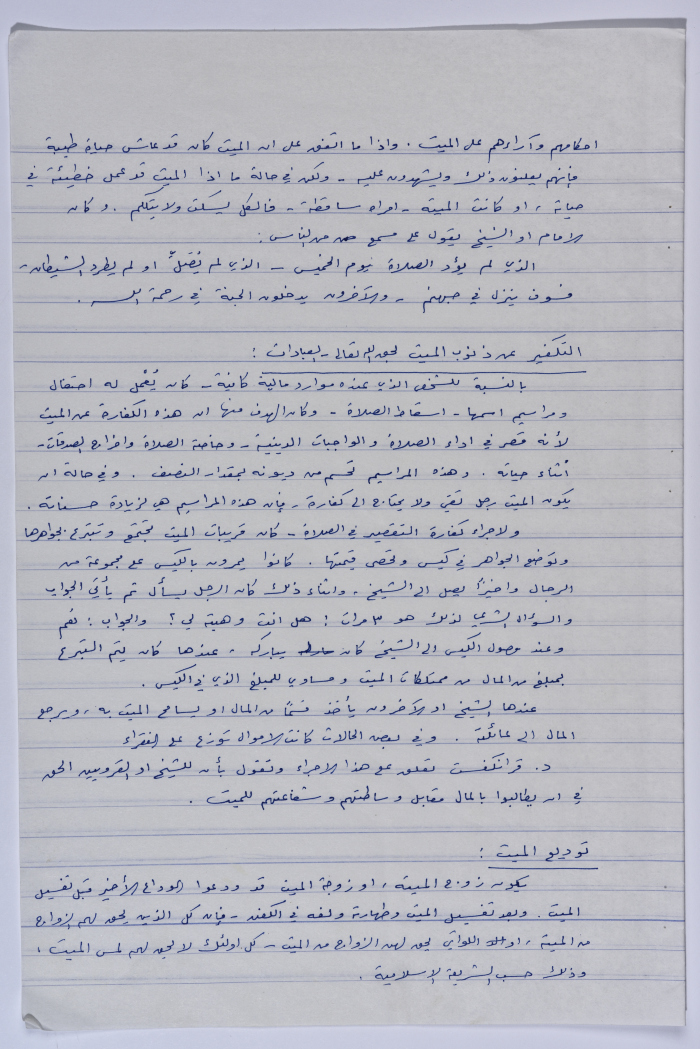 احكامهم وآراءهم على الميت . واذا ما اتفق على ان الميت كان قد عاش حياة طيبة
فإنهم يعلنون ذلك ويشهدون عليه - ولكن في حالة ما اذا الميت قد عمل خطيئة في
حياته ، او كانت الميته - امراه ساقطة - فالكل يسكت ولا يتكلم . وكان
الامام او الشيخ يقول على مسمع من الناس :
الذي لم يؤد الصلاة يوم الخميس - الذي لم يُصَلِّ او لم يطرد الشيطان -
فسوف ينزل في جهنم - والآخرون يدخلون الجنة في رحمة الله .
التكفير عن ذنوب الميت لحق الله تعالى - العبادات :
بالنسبة للشخص الذي عنده موارد مالية كافية - كان يُعْمل له احتفال
ومراسيم اسمها - اسقاط الصلاة - وكان الهدف منها ان هذه الكفارة عن الميت
لأنه قصر في اداء الصلاة والواجبات الدينية - وخاصة الصلاة واخراج الصدقات -
أثناء حياته . وهذه المراسيم تحسم من ديونه بمقدار النصف . وفي حالة ان
يكون الميت رجل تقي ولا يحتاج الى كفارة ، فإن هذه المراسيم هي لزيادة حسناته .
ولاجراء كفارة التقصير في الصلاة - كان قريبات الميت تجتمع وتتبرع بجواهرها
وتوضع الجواهر في كيس وتحصى قيمتها . كانوا يمرون بالكيس على مجموعة من
الرجال واخيراً يصل الى الشيخ ، واثناء ذلك كان الرجل يسأل ثم يأتي الجواب
والسؤال الشرعي لذلك هو مرات : هل انت وهبته لي ؟ والجواب : نعم
وعند وصول الكيس الى الشيخ كان يباركه ، عندها كان يتم التبرع
بمبلغ من المال من ممتلكات الميت ومساوي للمبلغ الذي في الكيس .
عندها الشيخ او الآخرون يأخذ قسمًا من المال او يسامح الميت به ، ويرجع
المال الى عائلته . وفي بعض الحالات كانت الاموال توزع على الفقراء
د . قرانكفست تعلق على هذا الاجراء وتقول بأن للشيخ او القرويين الحق
في ان يطالبوا بالمال مقابل وساطتهم وشفاعتهم للميت .
توديع الميت :
يكون زوج الميته ، او زوجة الميت قد ودعوا الوداع الأخير قبل تغسيل
الميت . وبعد تغسيل الميت وطهارته ولفه في الكفن - فإن كل الذين يحق لهم الزواج
من الميته ، او اللواتي يحق لهن الزواج من الميت - كل اولئك لا يحق لهم لمس الميت ،
وذلك حسب الشريعة الاسلامية .